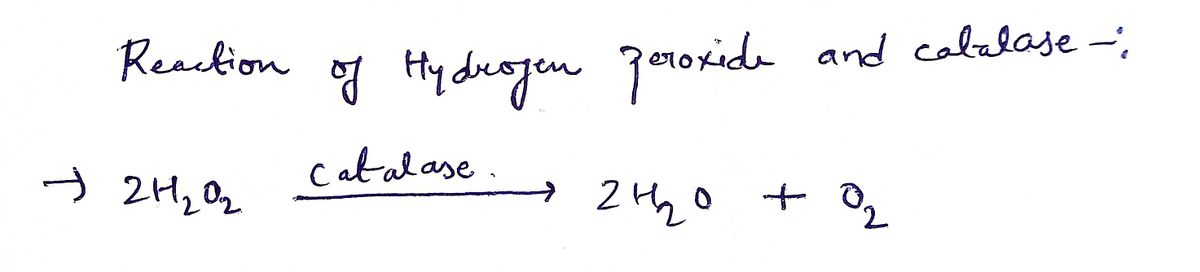 Reaction of Hydrogen peroxide and catalase -:
→ 2H₂O₂ catalase. → 2H₂O + O₂